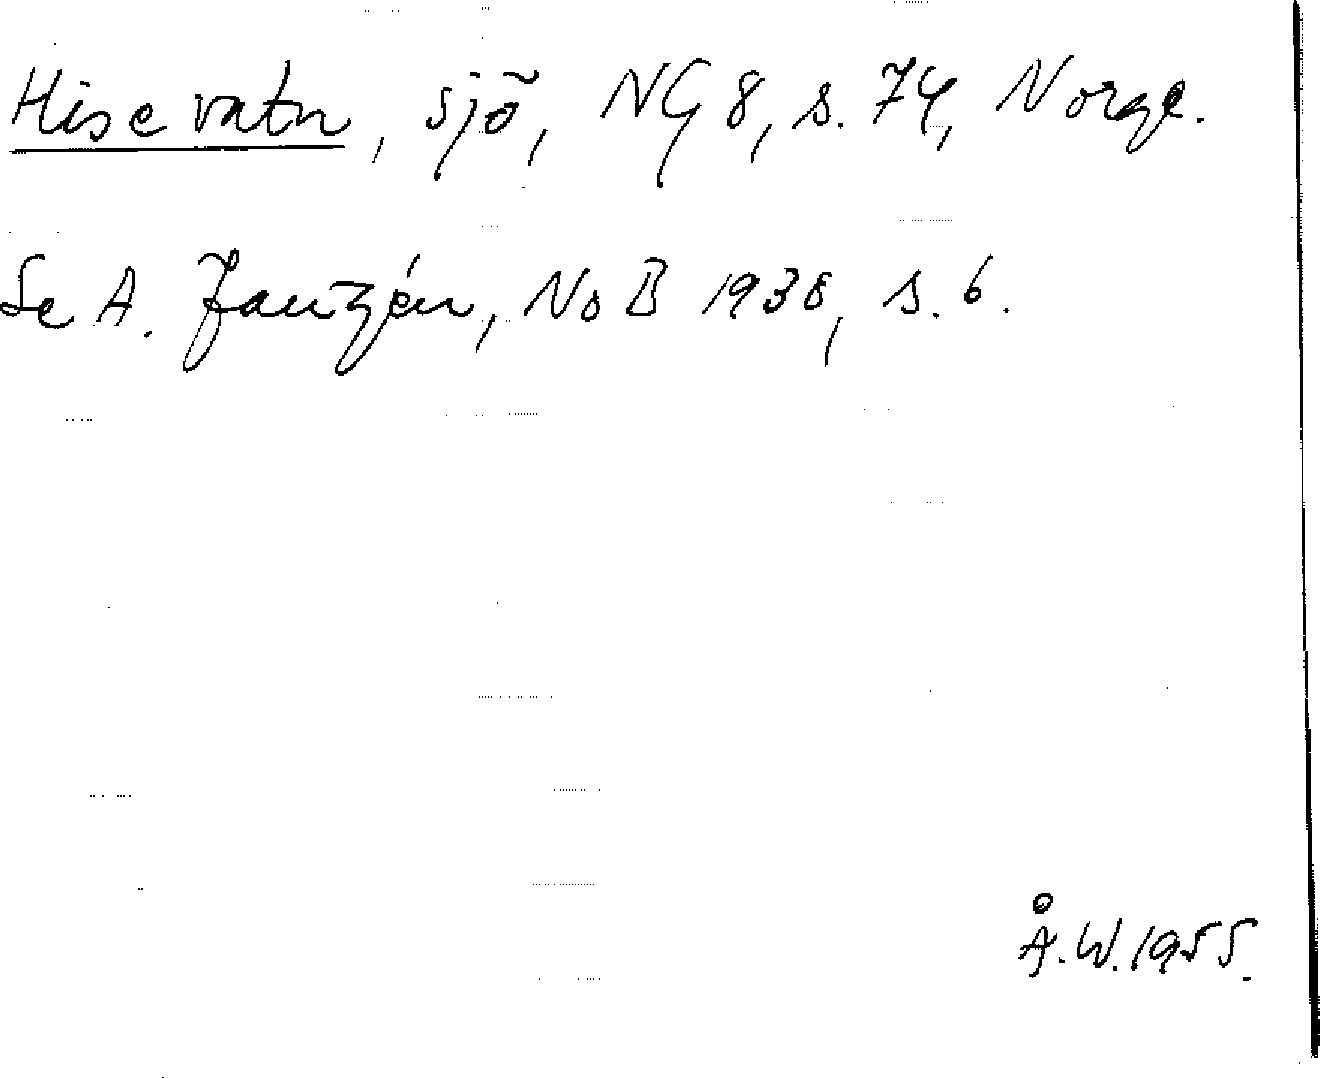 Hisevatn, sjö, NG 8, s. 74, Norge.
Se A. Janzén, NoB 1938, s. 6.
Å.W. 1955.